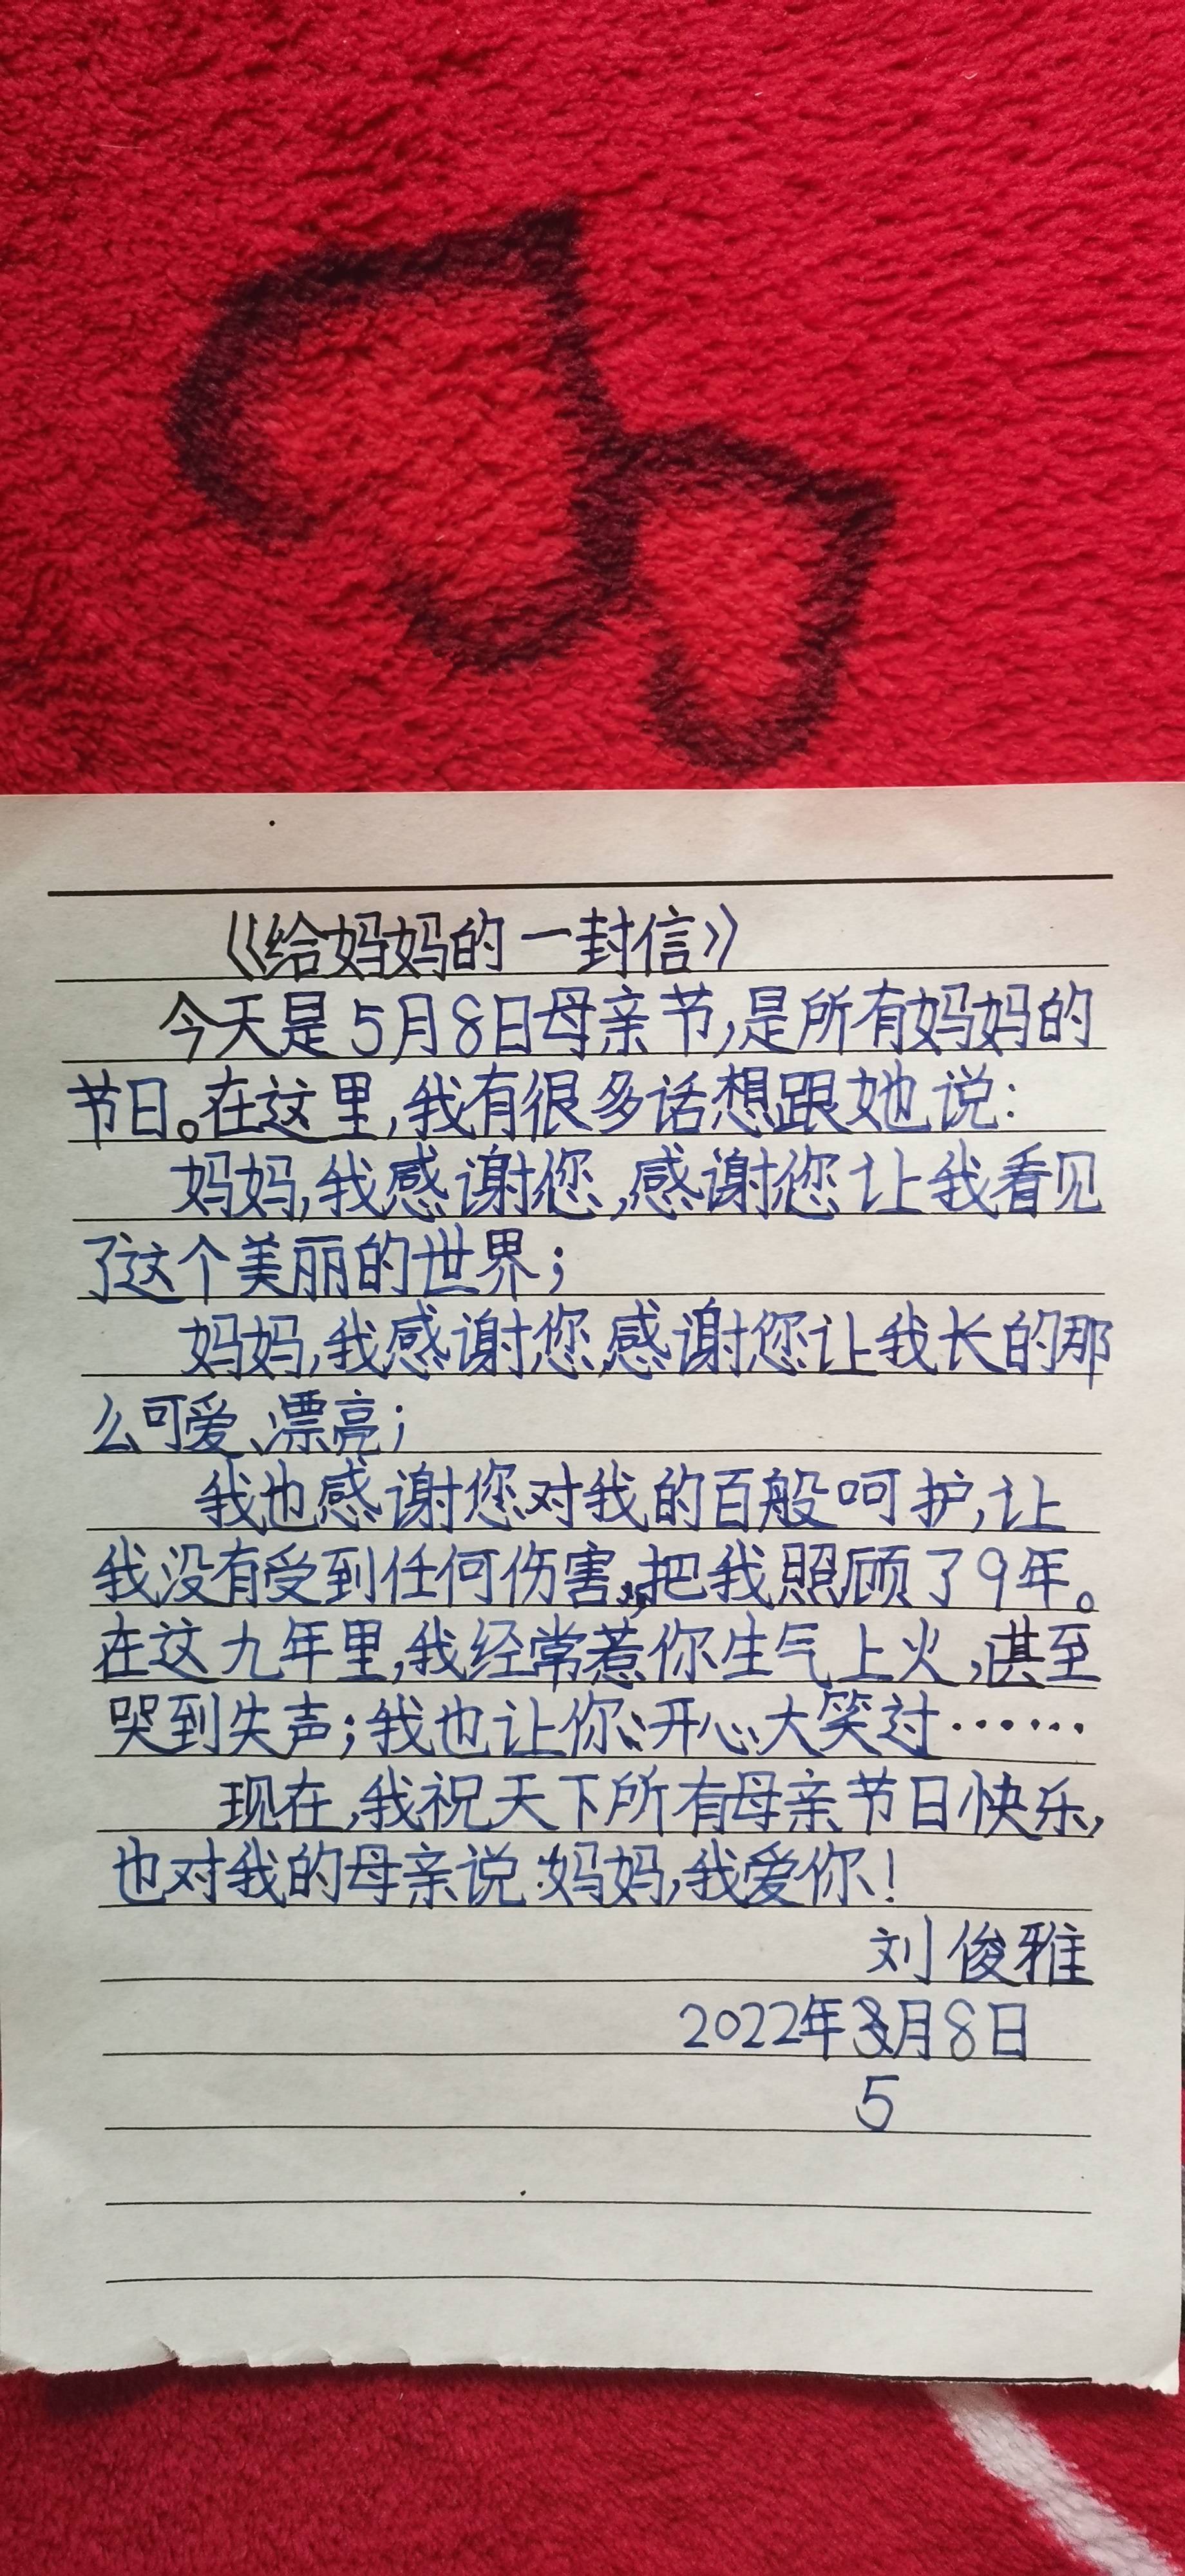 《给妈妈的一封信》
今天是5月8日母亲节,是所有妈妈的
节日。在这里,我有很多话想跟她说:
妈妈,我感谢您,感谢您让我看见
了这个美丽的世界;
妈妈,我感谢您感谢您让我长的那
么可爱、漂亮;
我也感谢您对我的百般呵护,让
我没有受到任何伤害,把我照顾了9年。
在这九年里,我经常惹你生气上火,甚至
哭到失声;我也让你开心大笑过……
现在,我祝天下所有母亲节日快乐,
也对我的母亲说:妈妈,我爱你!
刘俊雅
2022年3月8日
5